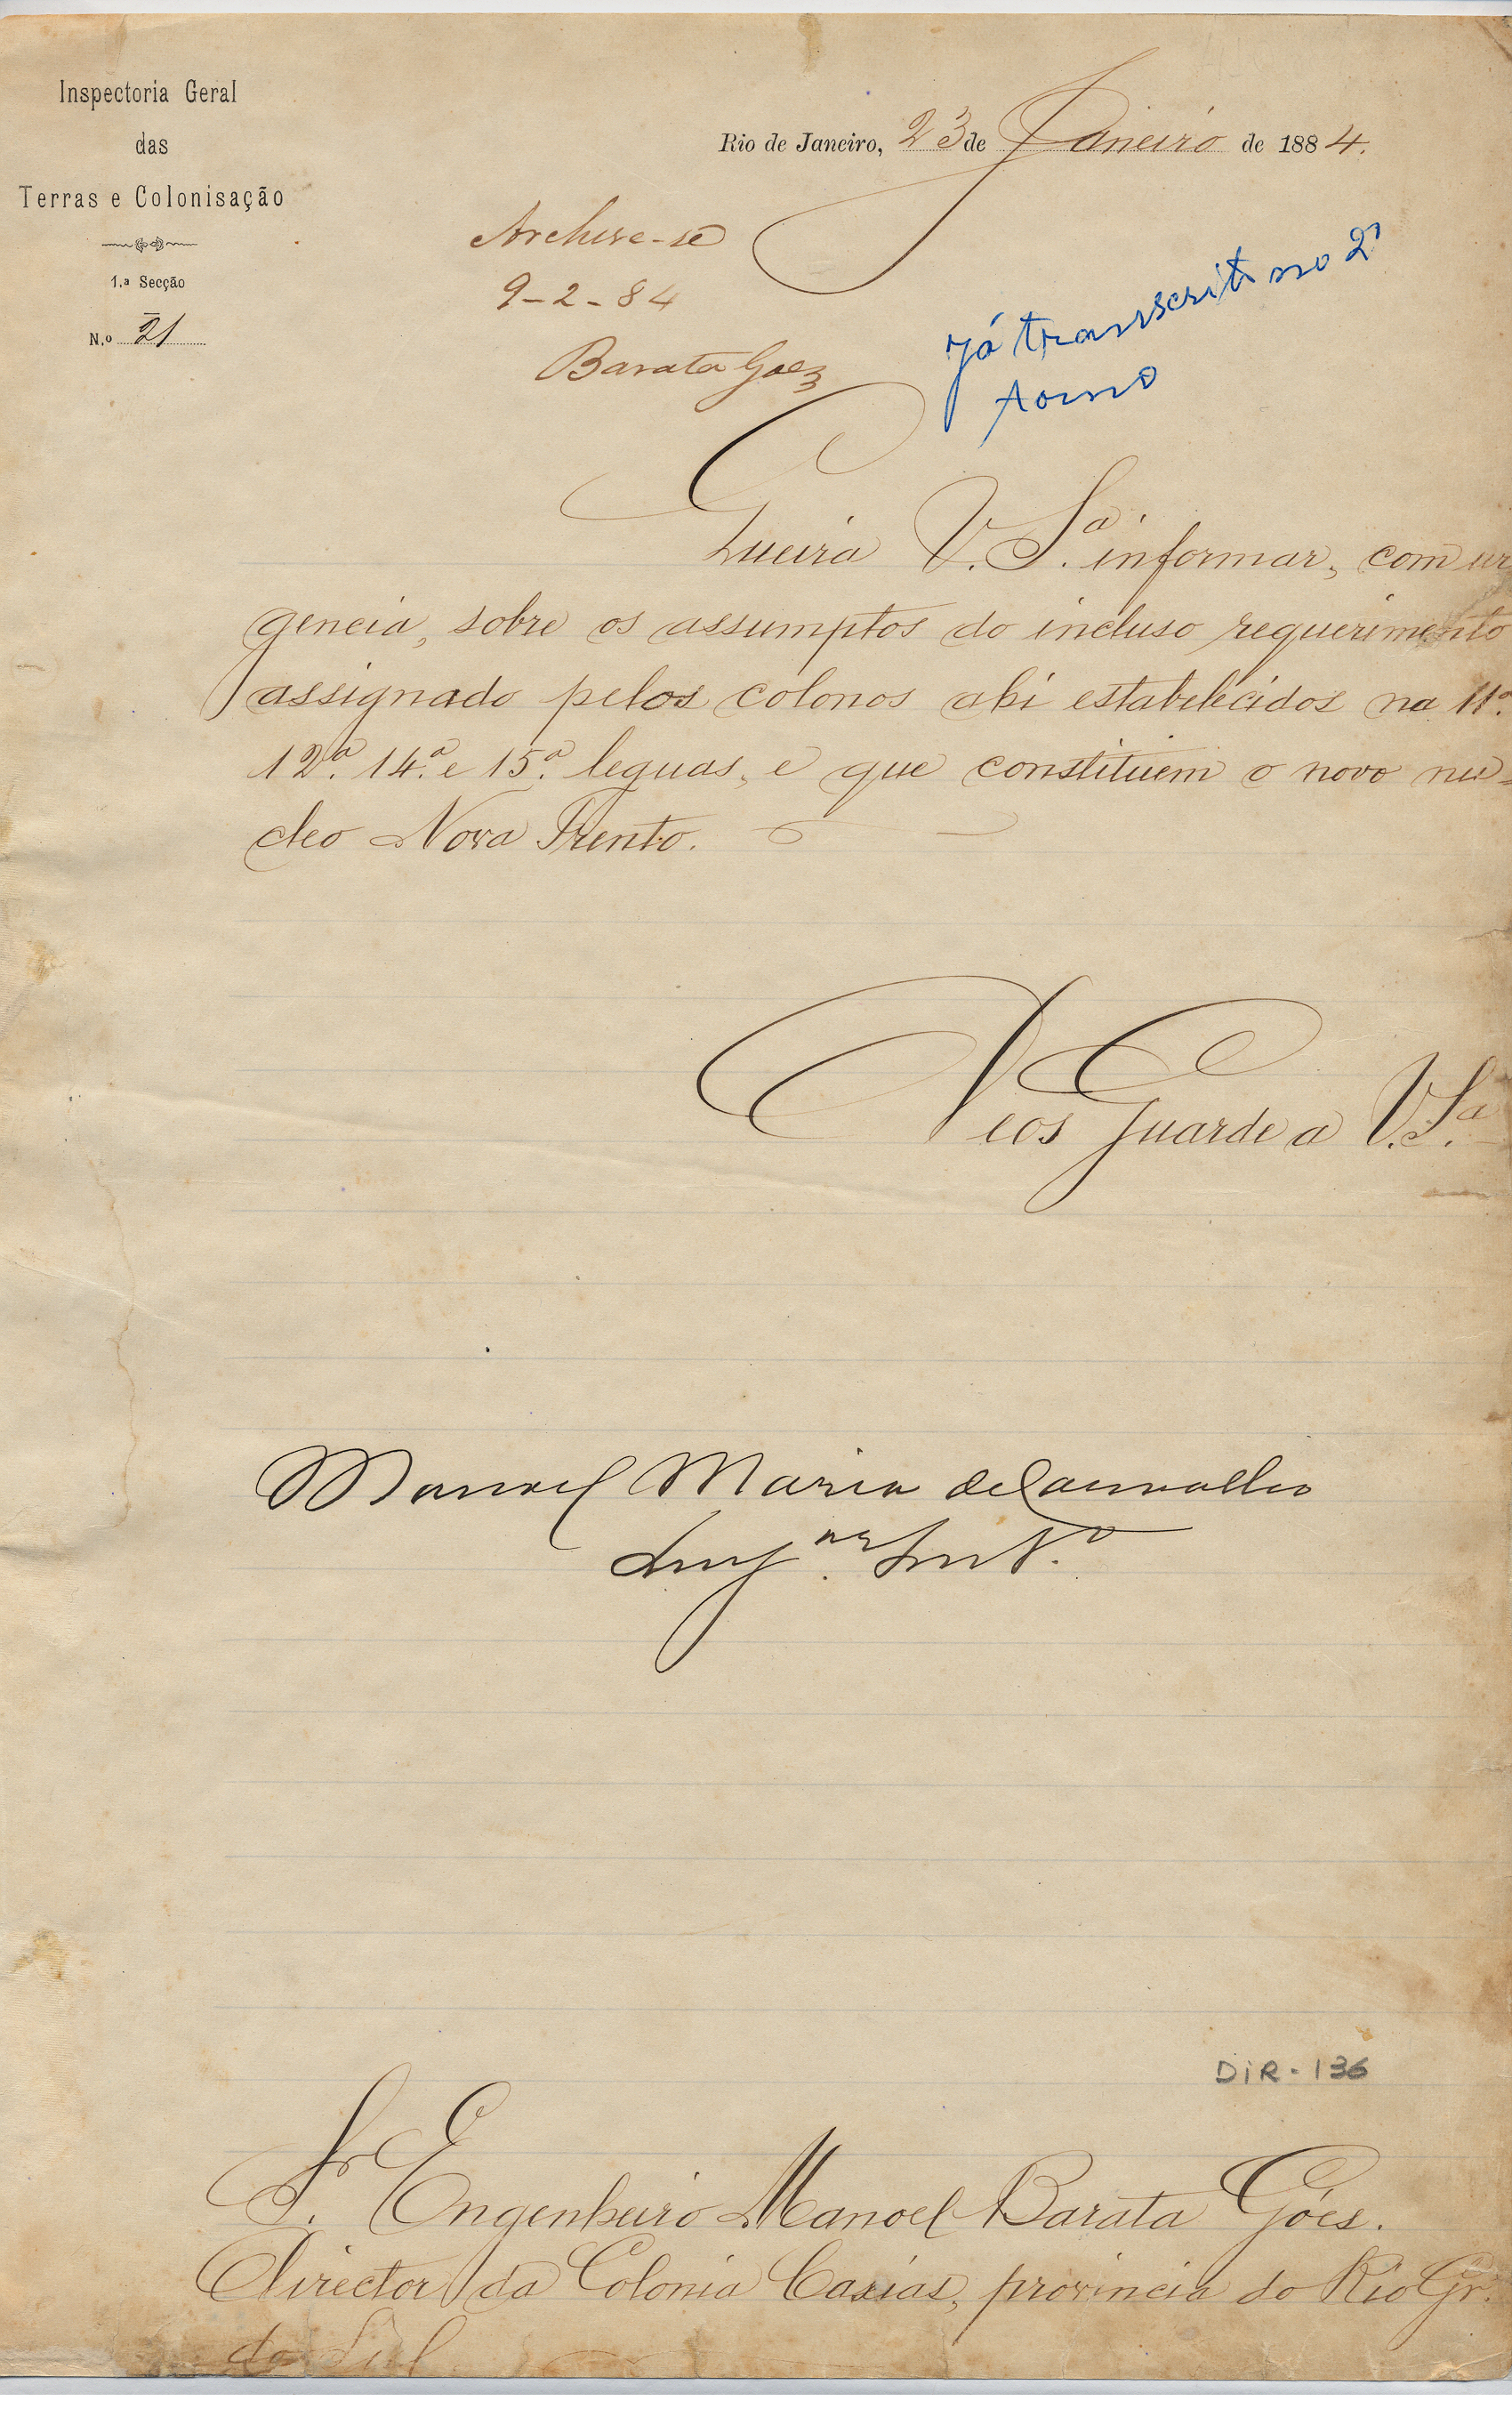 Inspectoria Geral
das
Terras e Colonisação
1.ª Secção
N.º 21
Rio de Janeiro, 23 de Janeiro de 1884.
Archive-se
9-2-84
Barata Goez
já transcrito no 2º
tomo
Queira V. S.ª informar, com ur
gencia, sobre os assumptos do incluso requerimento
assignado pelos colonos ahi estabelecidos na 11ª
12ª. 14ª. e 15ª. leguas, e que constituem o novo nu-
cleo Nova Trento.
Deos Guarde a V. S.ª
Manoel Maria de Carvalho
DIR-136
Sr. Engenheiro Manoel Barata Góes.
Director da Colonia Caxias, provincia do Rio Gr.
do Sul